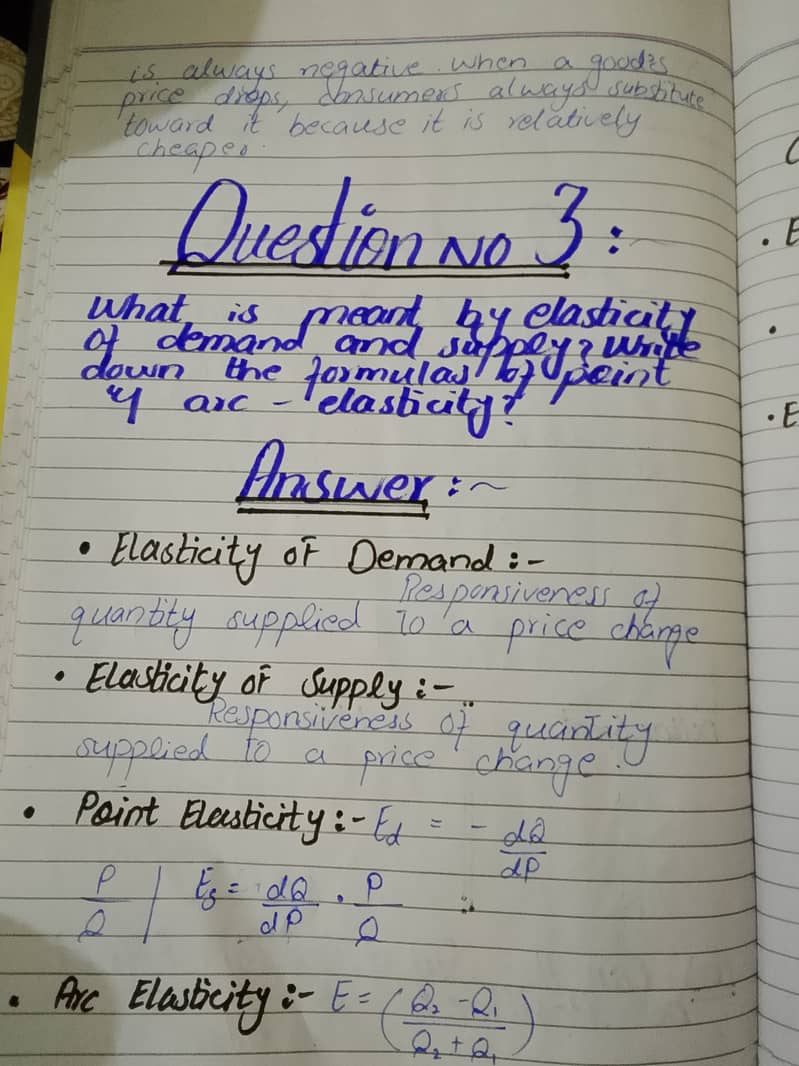 is always negative. when a good's
price drops, consumers always substitute
toward it because it is relatively
cheaper.
Question No 3:
What is meant by elasticity
of demand and supply? Write
down the formulas of point
& arc - elasticity?
Answer :~
• Elasticity of Demand :-
Responsiveness of
quantity supplied to a price change
• Elasticity of Supply :-
Responsiveness of quantity
supplied to a price change.
• Point Elasticity :- Ed = - dQ/dP
P/Q | Es = dQ/dP . P/Q
• Arc Elasticity :- E = (Q2 - Q1 / Q2 + Q1)